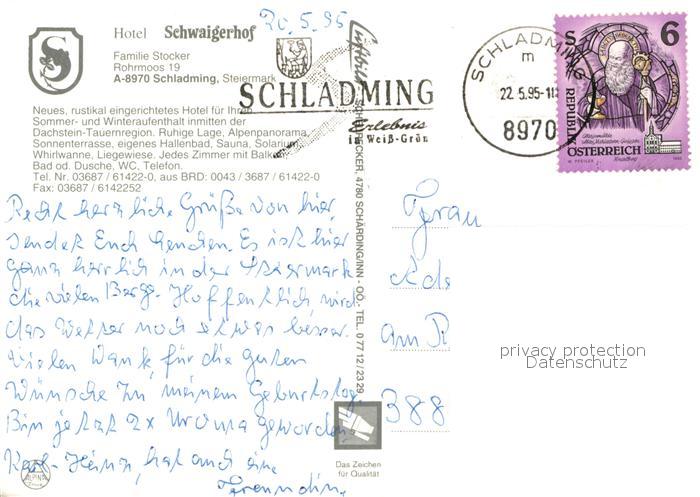 20.5.95
Hotel Schwaigerhof
Familie Stocker
Rohrmoos 19
A-8970 Schladming, Steiermark
Neues, rustikal eingerichtetes Hotel für Ihren
Sommer- und Winteraufenthalt inmitten der
Dachstein-Tauernregion. Ruhige Lage, Alpenpanorama,
Sonnenterrasse, eigenes Hallenbad, Sauna, Solarium,
Whirlwanne, Liegewiese. Jedes Zimmer mit Balkon,
Bad od. Dusche, WC, Telefon.
Tel. Nr. 03687 / 61422-0, aus BRD: 0043 / 3687 / 61422-0
Fax: 03687 / 6142252
SCHLADMING
Erlebnis
in Weiß-Grün
SCHLADMING
22.5.95-11
8970
S 6
REPUBLIK
ÖSTERREICH
4780 SCHÄRDING/INN - OÖ. - TEL. 0 77 12 / 23 29
Recht herzliche Grüße von hier,
sendet Euch Genchen. Es ist hier
ganz herrlich in der Steiermark
die vielen Berge. Hoffentlich wird
das Wetter noch etwas besser.
Vielen Dank für die guten
Wünsche zu meinem Geburtstag.
Bin jetzt 2x Uroma geworden.
Karl-Heinz hat auch eine
Freundin.
Frau
am R
388
privacy protection
Datenschutz
Das Zeichen
für Qualität
ALPINA